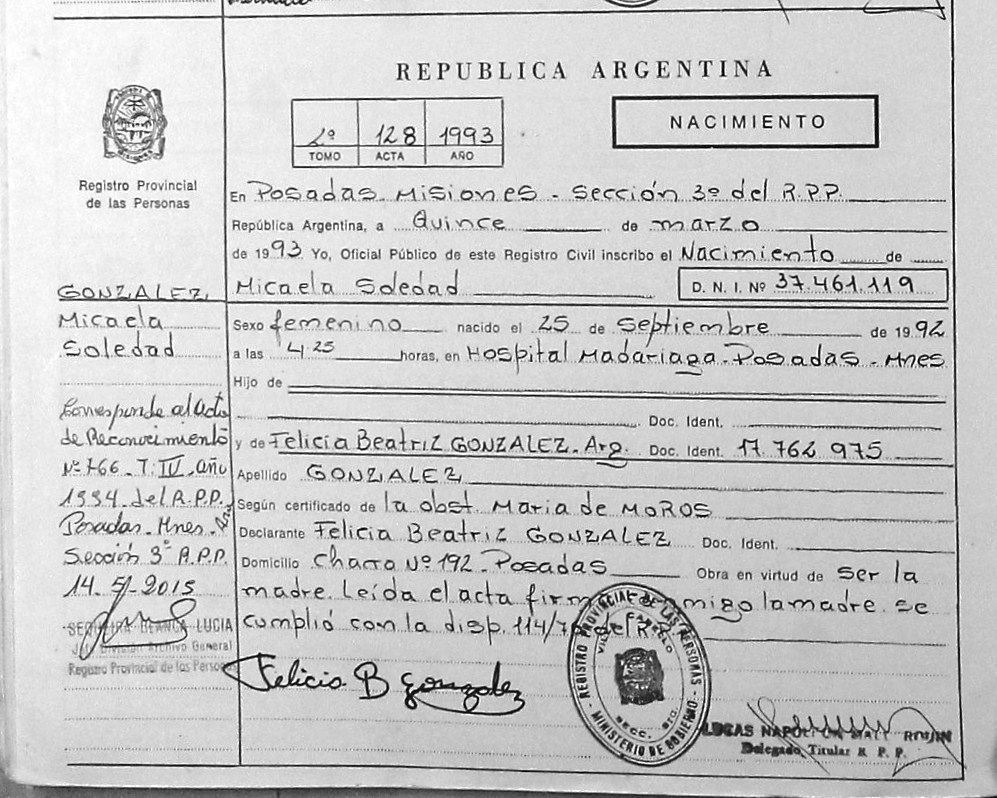 REPUBLICA ARGENTINA
2º 128 1993
TOMO ACTA AÑO
NACIMIENTO
Registro Provincial
de las Personas
En Posadas. Misiones - Sección 3º del R.P.P.
República Argentina, a Quince de marzo
de 1993 Yo, Oficial Público de este Registro Civil inscribo el Nacimiento de
Micaela Soledad D. N. I. Nº 37.461.119
Sexo femenino nacido el 25 de Septiembre de 1992
a las 4.25 horas, en Hospital Madariaga - Posadas - Mnes
Hijo de
Doc. Ident.
y de Felicia Beatriz GONZALEZ. Arg. Doc. Ident. 17 762 975
Apellido GONZALEZ
Según certificado de la obst. Maria de MOROS
Declarante Felicia Beatriz GONZALEZ Doc. Ident.
Domicilio Chacra Nº 192 - Posadas Obra en virtud de ser la
madre. Leída el acta migo la madre. se
cumplió con la disp. 114/
Felicia B Gonzalez
GONZALEZ,
Micaela
Soledad
Corresponde al Acta
de Reconocimiento
Nº 766 - T: IV. Año
1994 del R.P.P.
Posadas. Mnes.
Sección 3º R.P.P.
14-5-2015
BLANCA LUCIA
División Archivo General
Registro Provincial de las Personas
REGISTRO PROVINCIAL DE LAS PERSONAS
MINISTERIO DE GOBIERNO
LUCAS
Delegado Titular R. P. P.